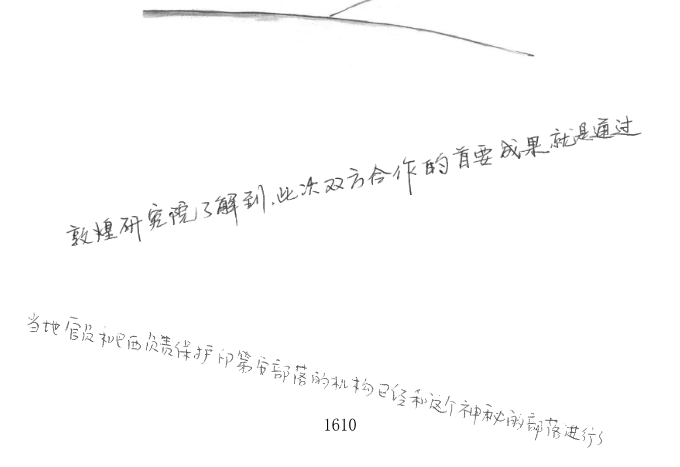 敦煌研究院了解到,此次双方合作的首要成果就是通过
当地官员和巴西负责保护印第安部落的机构已经和这个神秘的部落进行
1610